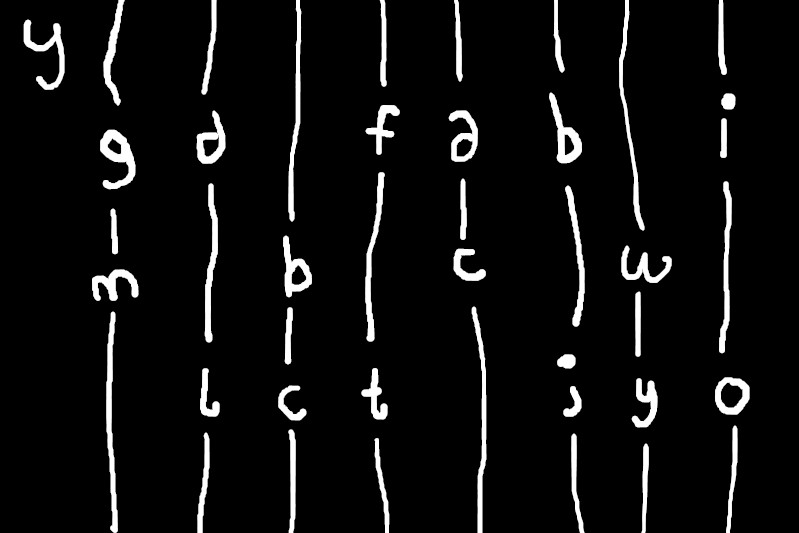 y
g d f a b i
m b c w
l c t j y o